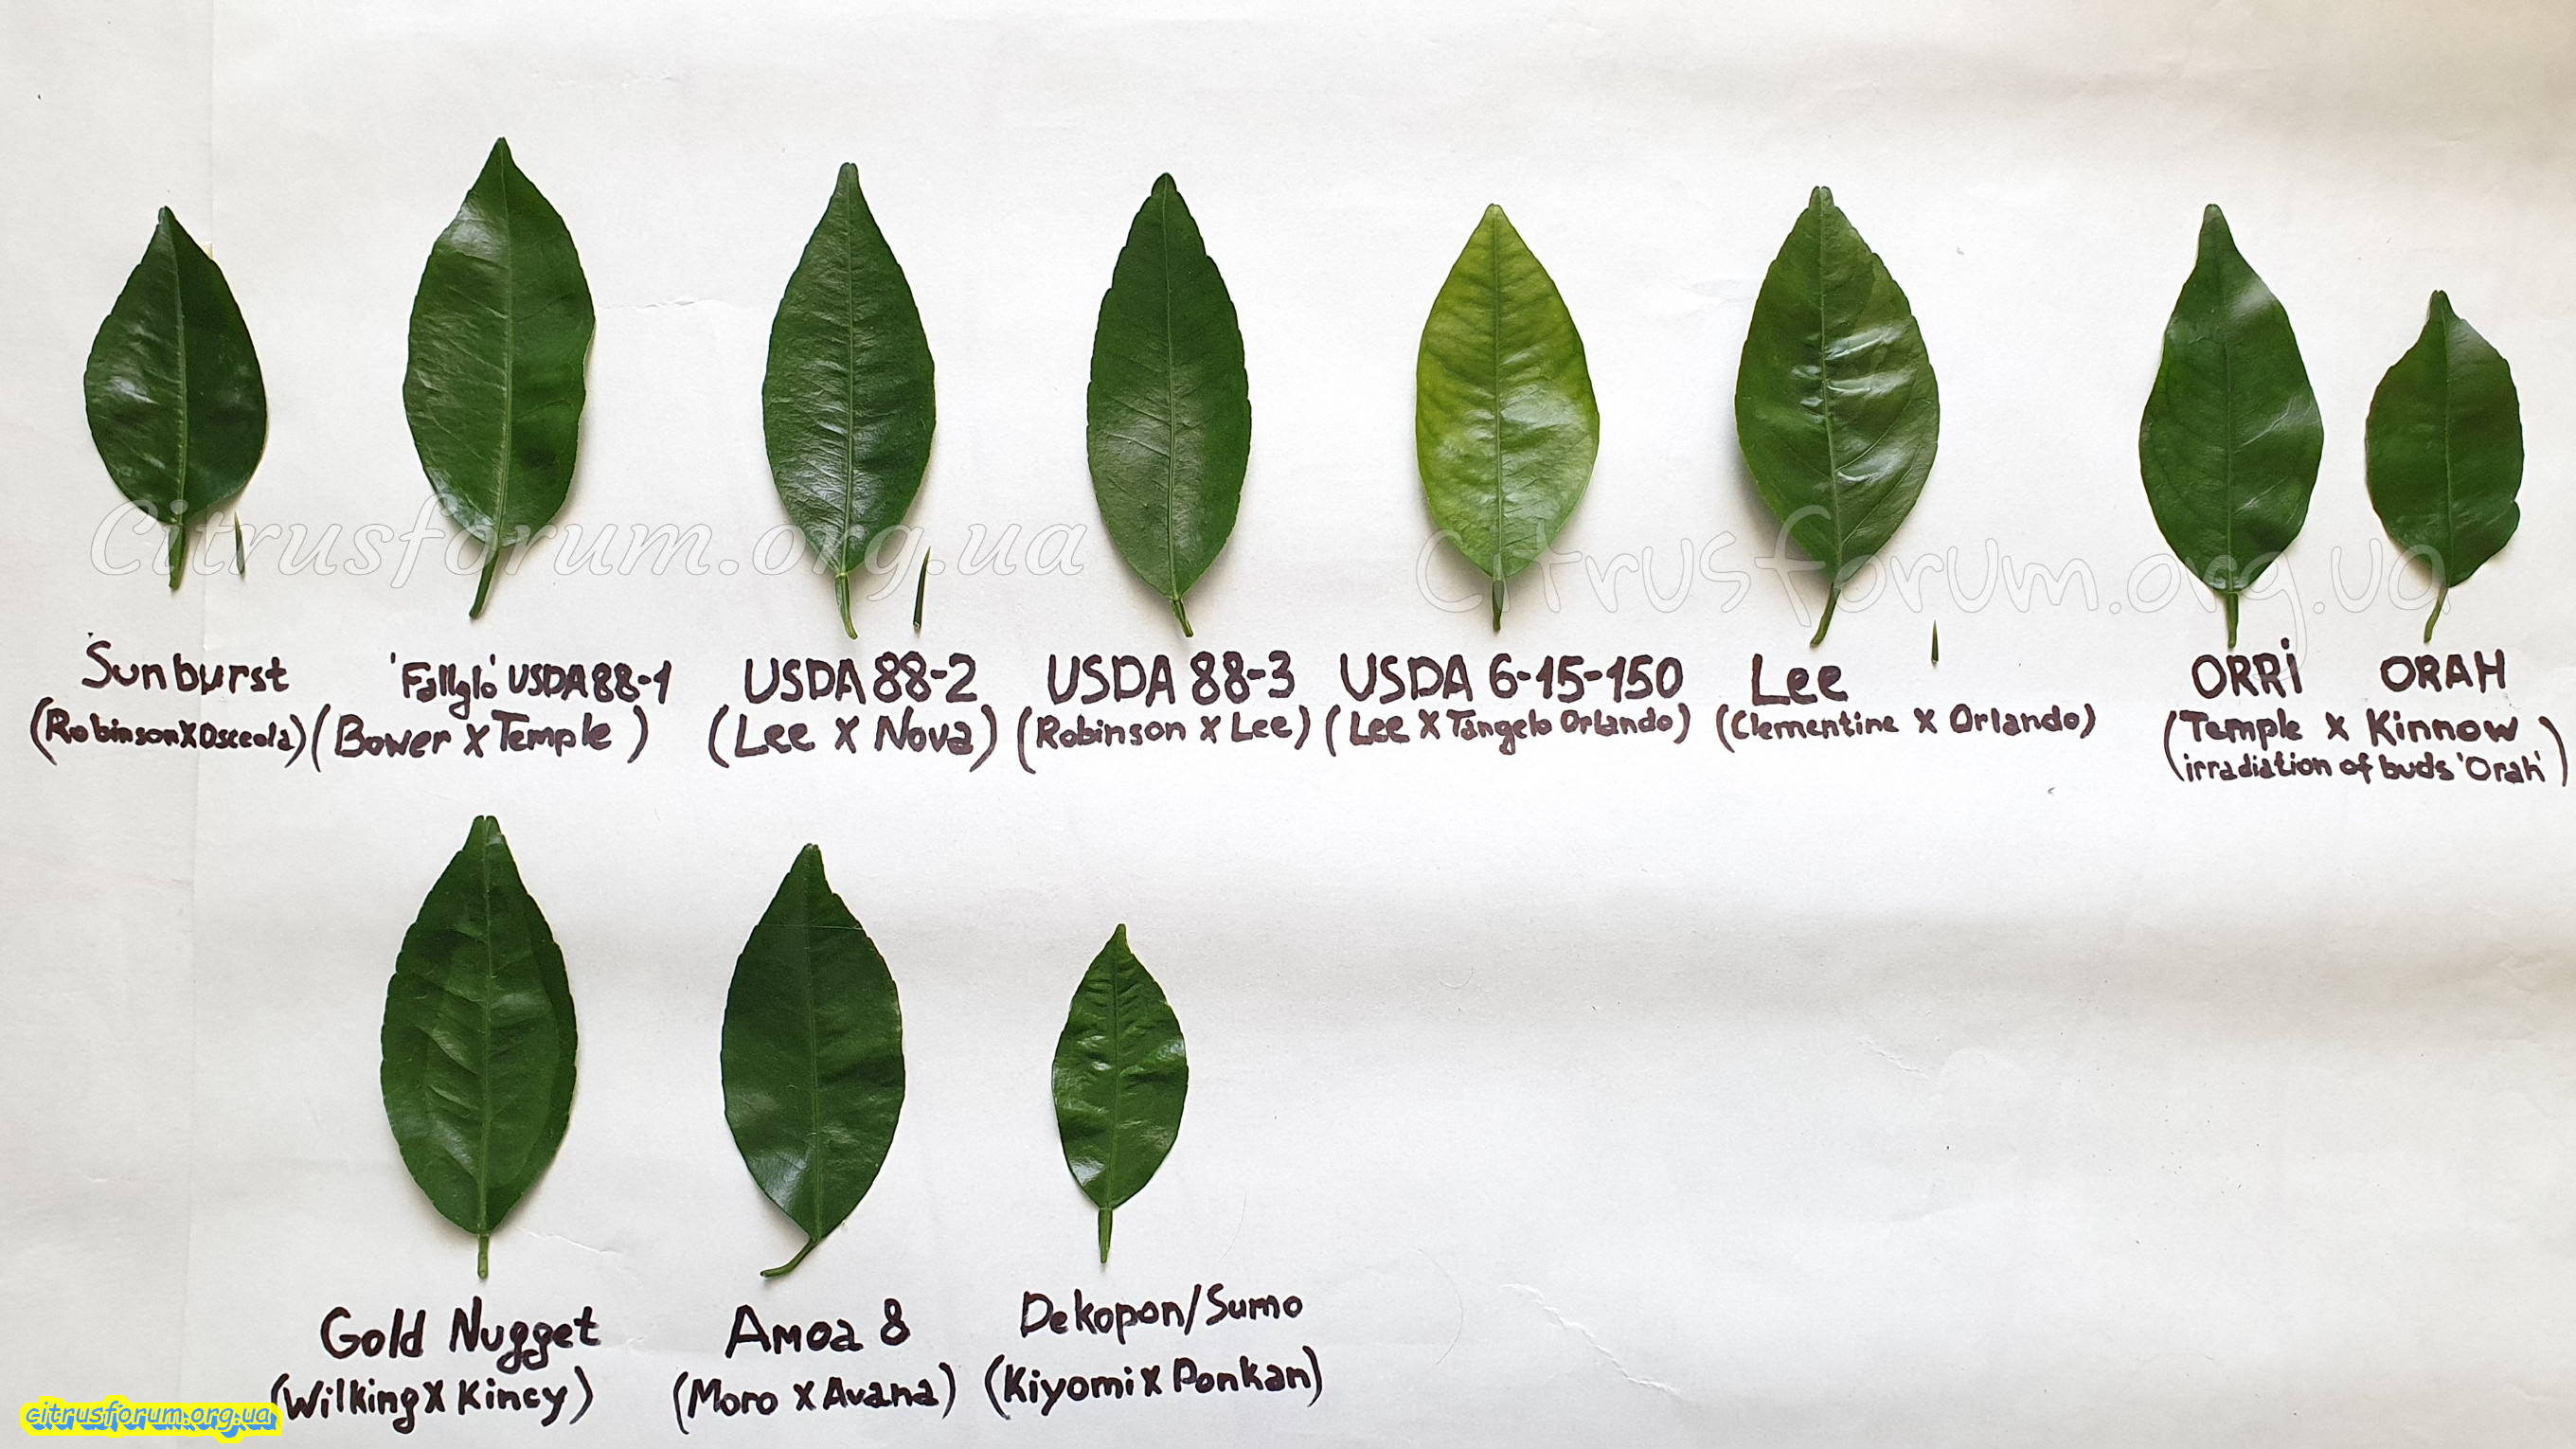 Citrusforum.org.ua
Citrusforum.org.ua
Sunburst
(Robinson X Osceola)
'Fallglo' USDA 88-1
(Bower X Temple)
USDA 88-2
(Lee X Nova)
USDA 88-3
(Robinson X Lee)
USDA 6-15-150
(Lee X Tangelo Orlando)
Lee
(Clementine X Orlando)
ORRi ORAH
(Temple X Kinnow
irradiation of buds 'Orah')
Gold Nugget
(Wilking X Kincy)
Amoa 8
(Moro X Avana)
Dekopon/Sumo
(Kiyomi X Ponkan)
citrusforum.org.ua